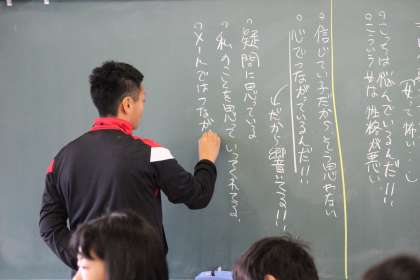 ○こっちは悩んでいるんだ!!
○こういう女は性格が悪い
○信じてい子だからそう思わない
○心でつながているんだ!!
だから響いてる!!
○疑問に思っている
○私のことを思っている
○メールではつなが